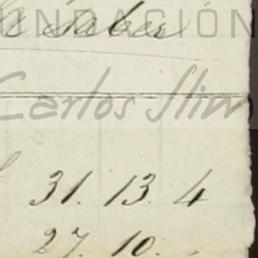 FUNDACIÓN
Saber
Carlos Slim
31. 13. 4
27. 10.